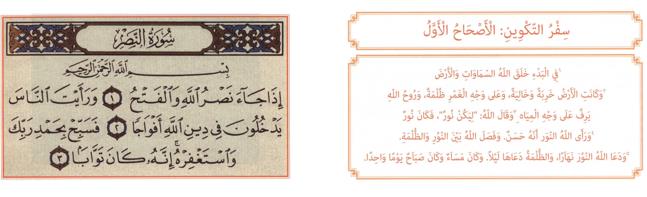 سُورَةُ النَّصْرِ
بِسْمِ اللَّهِ الرَّحْمَٰنِ الرَّحِيمِ
إِذَا جَآءَ نَصْرُ اللَّهِ وَالْفَتْحُ ١ وَرَأَيْتَ النَّاسَ
يَدْخُلُونَ فِي دِينِ اللَّهِ أَفْوَاجًا ٢ فَسَبِّحْ بِحَمْدِ رَبِّكَ
وَاسْتَغْفِرْهُ إِنَّهُ كَانَ تَوَّابًا ٣
سِفْرُ التَّكْوِينِ: الْأَصْحَاحُ الْأَوَّلُ
فِي الْبَدْءِ خَلَقَ اللهُ السَّمَاوَاتِ وَالْأَرْضَ
وَكَانَتِ الْأَرْضُ خَرِبَةً وَخَالِيَةً، وَعَلَى وَجْهِ الْغَمْرِ ظُلْمَةٌ، وَرُوحُ اللهِ
يَرِفُّ عَلَى وَجْهِ الْمِيَاهِ وَقَالَ اللهُ: "لِيَكُنْ نُورٌ"، فَكَانَ نُورٌ
وَرَأَى اللهُ النُّورَ أَنَّهُ حَسَنٌ. وَفَصَلَ اللهُ بَيْنَ النُّورِ وَالظُّلْمَةِ.
وَدَعَا اللهُ النُّورَ نَهَارًا، وَالظُّلْمَةُ دَعَاهَا لَيْلًا. وَكَانَ مَسَاءٌ وَكَانَ صَبَاحٌ يَوْمًا وَاحِدًا.